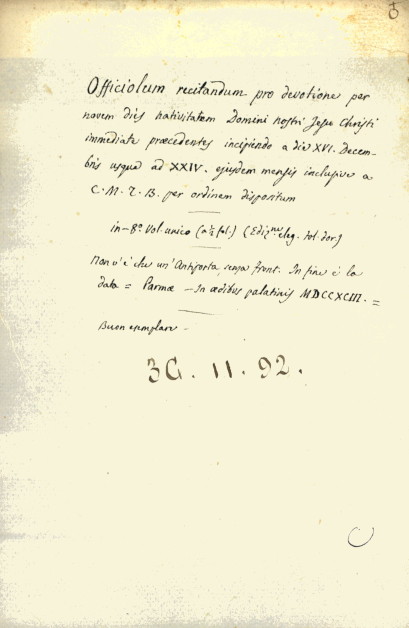 Officiolum recitandum pro devotione per
novem dies nativitatem Domini nostri Jesu Christi
immediate præcedentes incipiendo a die XVI. Decem-
bris usque ad XXIV. ejusdem mensis inclusive a
C. M. T. B. per ordinem dispositum
in-8° Vol. unico (a ½ fol.) (Ediz.ne eleg. tol. dor.)
Non v'è che un'Antiporta, senza front. In fine è la
data = Parmæ - In ædibus palatinis MDCCXCIII. =
Buon esemplare -
3G. 11. 92.